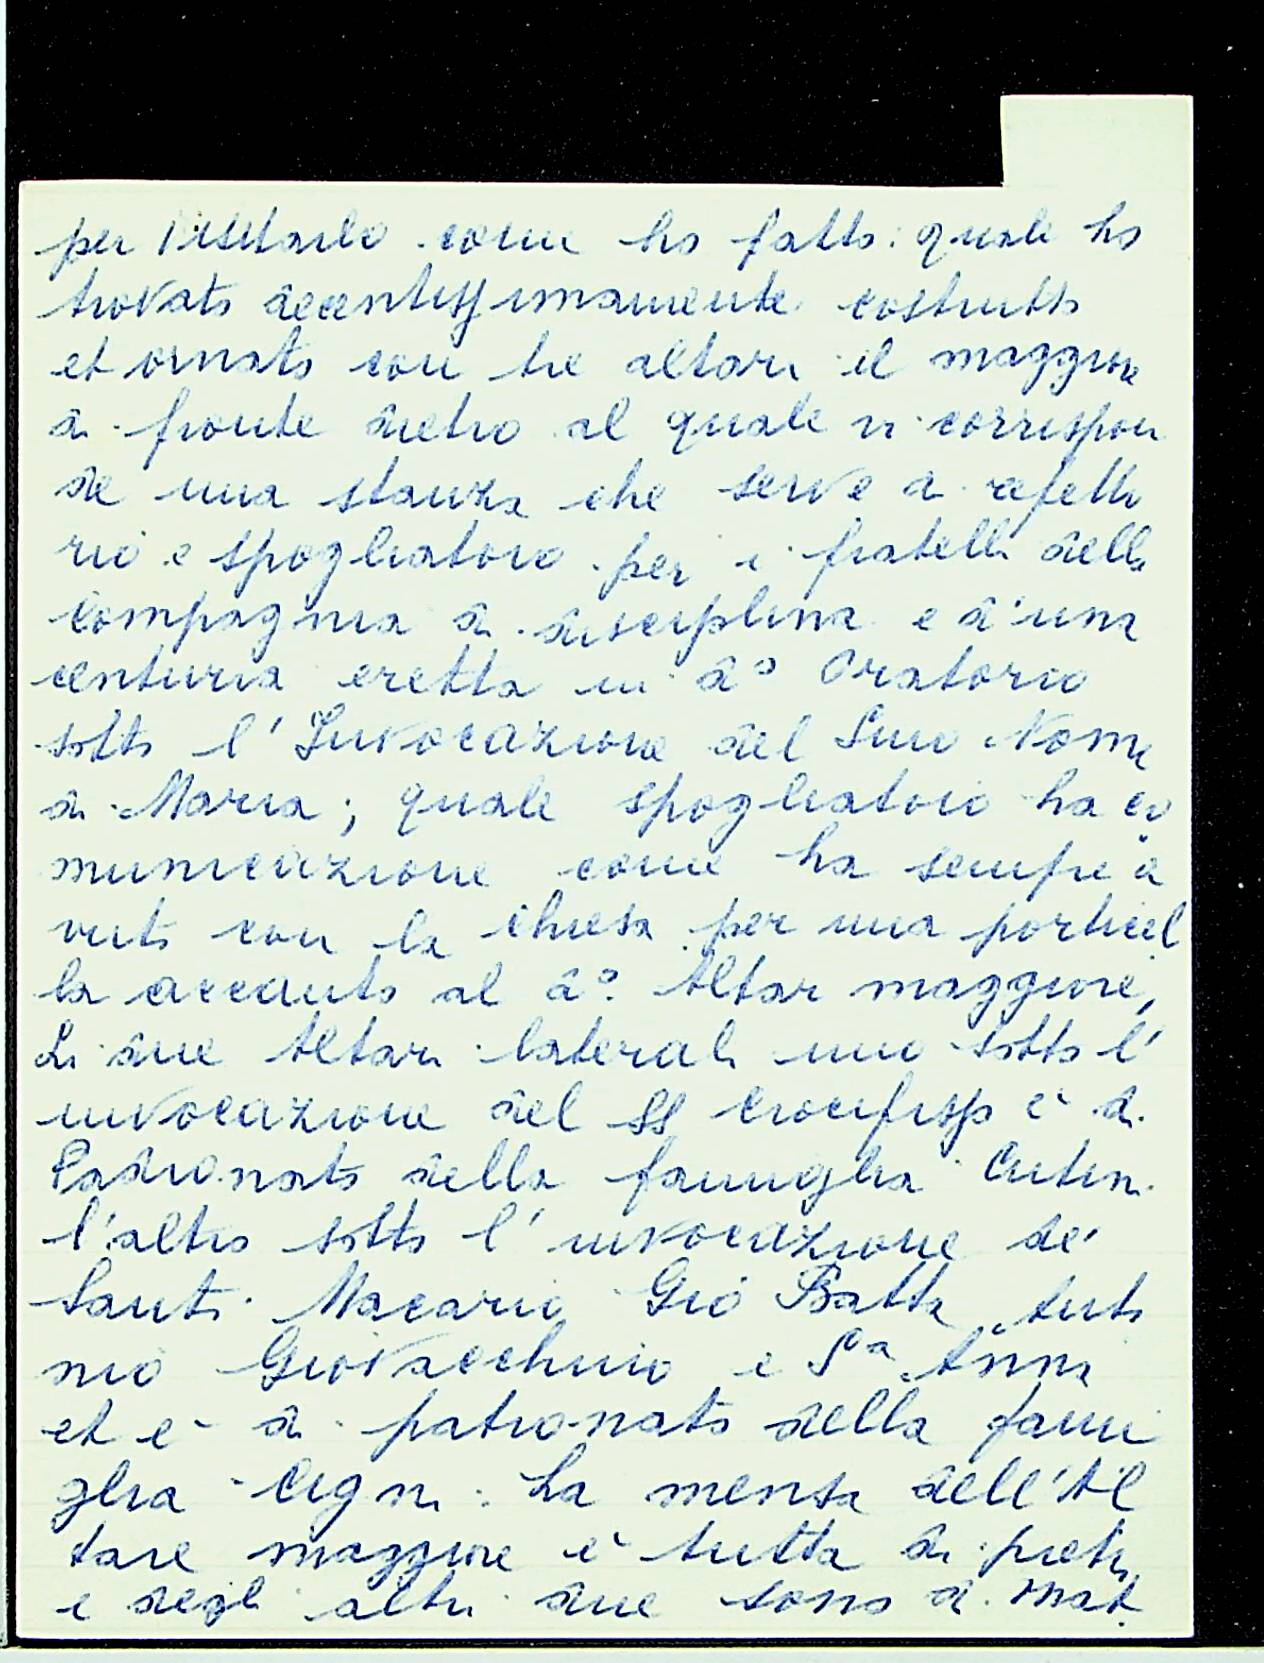 per visitarlo come ho fatto: quale ho
trovato decentissimamente costrutto
et ornato con tre altari il maggiore
di fronte dietro al quale vi corrispon
de una stanza che serve a refetto
rio e spogliatoio per i fratelli della
Compagnia di disciplina e d'una
centuria eretta in dº Oratorio
sotto l'Invocazione del Smo Nome
di Maria; quale spogliatoio ha co
municazione come ha sempre a
vuto con la chiesa per una porticel
la accanto al dº. Altar maggiore,
Li due Altari laterali uno sotto l'
invocazione del SS Crocifisso e di
Padronato della famiglia
l'altro sotto l'invocazione de'
Santi Macario Gio Batta Anto
nio Giovacchino e Sª Anna
et è di patronato della fami
glia Cigni. La mensa dell'Al
tare maggiore è tutta di pietra
e degli altri due sono di mat